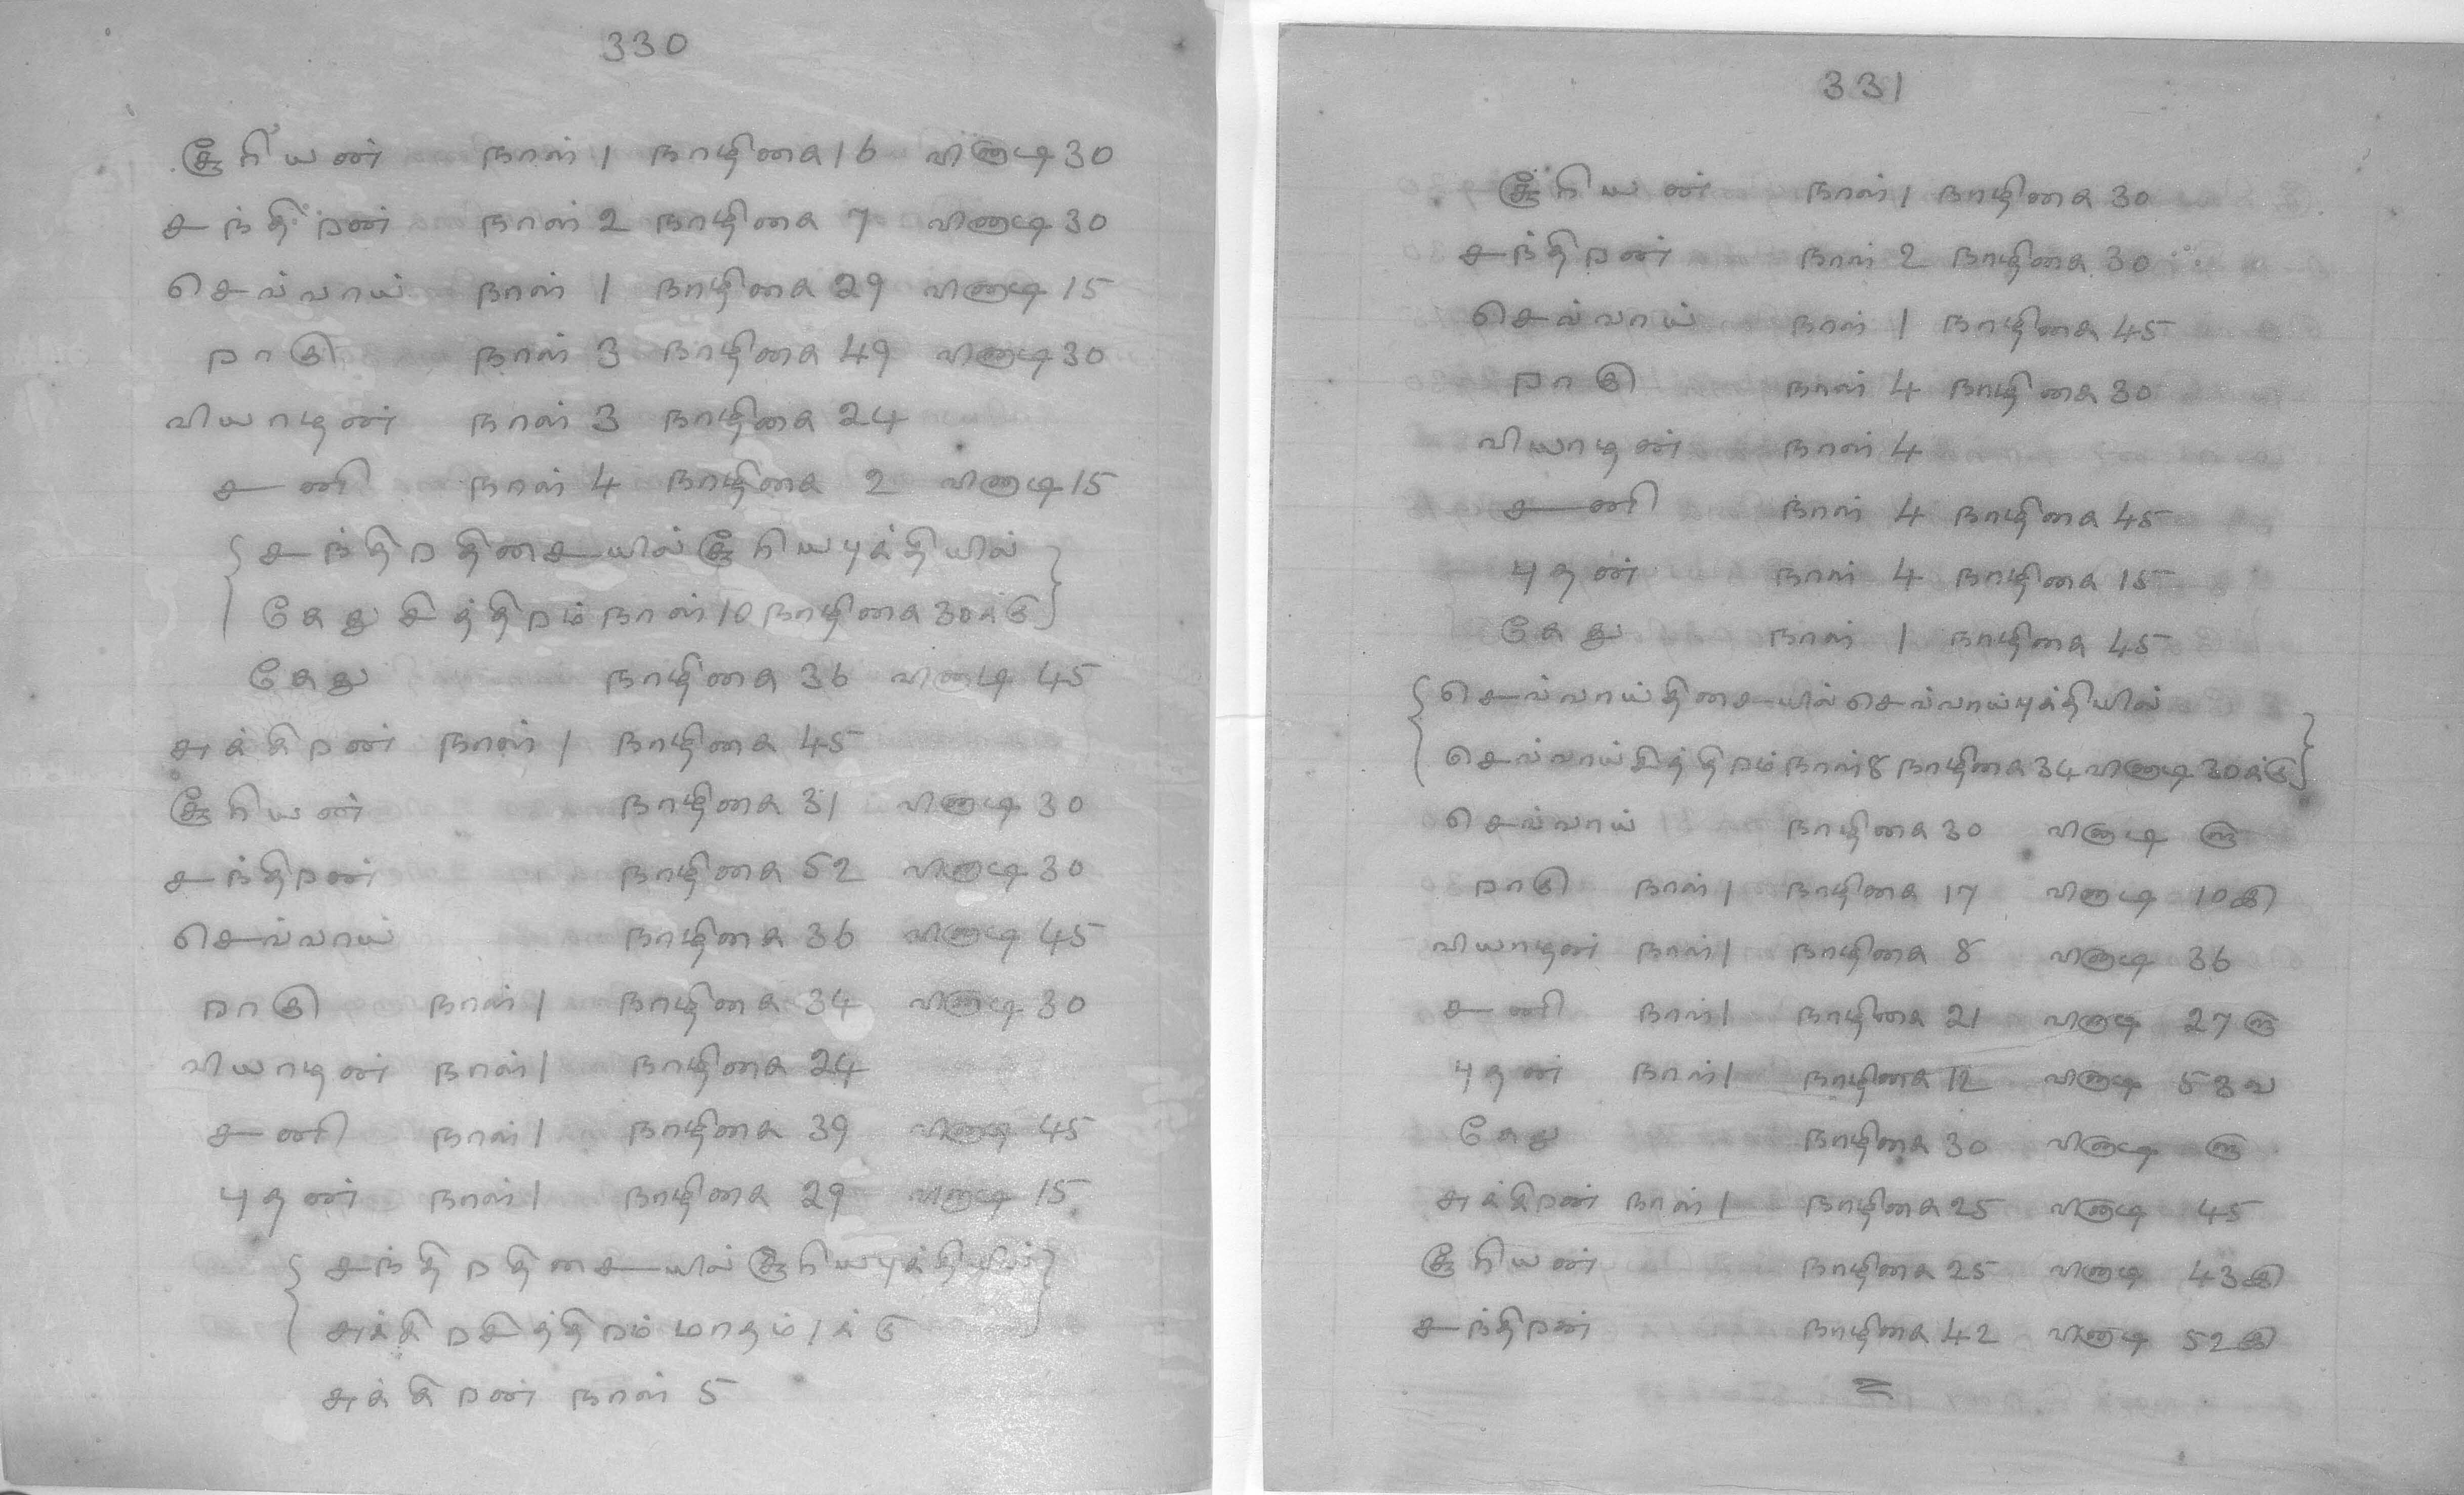 330
சூரியன் நாள் 1 நாழிகை 16 வினாடி 30
சந்திறன் நாள் 2 நாழிகை 7 வினாடி 30
செவ்வாய் நாள் 1 நாழிகை 29 வினாடி 15
றாகு நாள் 3 நாழிகை 49 வினாடி 30
வியாழன் நாள் 3 நாழிகை 24
சனி நாள் 4 நாழிகை 2 வினாடி 15
சந்திறதிசையில் சூரியபுக்தியில்
கேது சித்திறம் நாள் 10 நாழிகை 30க்கு
கேது நாழிகை 36 வினாடி 45
சுக்கிறன் நாள் 1 நாழிகை 45
சூரியன் நாழிகை 31 வினாடி 30
சந்திறன் நாழிகை 52 வினாடி 30
செவ்வாய் நாழிகை 36 வினாடி 45
றாகு நாள் 1 நாழிகை 34 வினாடி 30
வியாழன் நாள் 1 நாழிகை 24
சனி நாள் 1 நாழிகை 39 வினாடி 45
புதன் நாள் 1 நாழிகை 29 வினாடி 15
சந்திறதிசையில் சூரியபுக்தியில்
சுக்கிறசித்திறம் மாதம் 1க்கு
சுக்கிறன் நாள் 5
331
சூரியன் நாள் 1 நாழிகை 30
சந்திறன் நாள் 2 நாழிகை 30
செவ்வாய் நாள் 1 நாழிகை 45
றாகு நாள் 4 நாழிகை 30
வியாழன் நாள் 4
சனி நாள் 4 நாழிகை 45
புதன் நாள் 4 நாழிகை 15
கேது நாள் 1 நாழிகை 45
செவ்வாய்திசையில் செவ்வாய்புக்தியில்
செவ்வாய்சித்திறம் நாள் 8 நாழிகை 34 வினாடி 30க்கு
செவ்வாய் நாழிகை 30 வினாடி ௵
றாகு நாள் 1 நாழிகை 17 வினாடி 10
வியாழன் நாள் 1 நாழிகை 8 வினாடி 36
சனி நாள் 1 நாழிகை 21 வினாடி 27
புதன் நாள் 1 நாழிகை 12 வினாடி 53வ
கேது நாழிகை 30 வினாடி
சுக்கிறன் நாள் 1 நாழிகை 25 வினாடி 45
சூரியன் நாழிகை 25 வினாடி 43
சந்திறன் நாழிகை 42 வினாடி 52